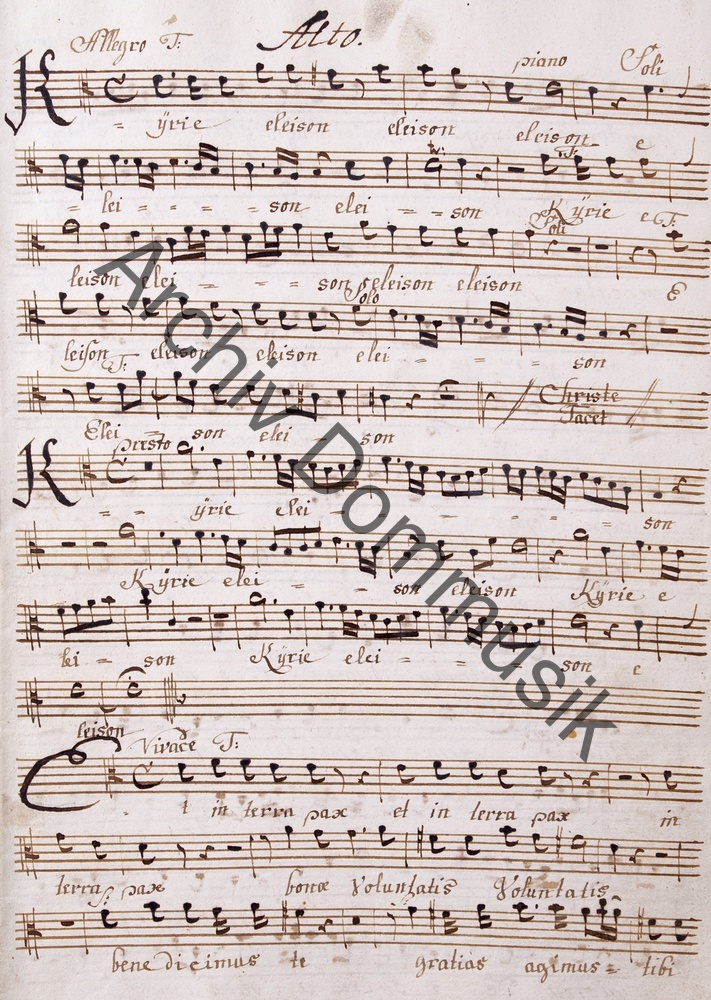 Allegro T: Alto. piano Soli
Kÿrie eleison eleison eleison e
T:
lei - - - son elei - - son Kÿrie e
Soli T:
leison elei - - - son eleison eleison E
Solo
leison eleison eleison elei - - - son
T:
Elei - son elei - son
Christe
Tacet
presto
Kÿrie elei - - - - - son
Kÿrie elei - - - son eleison Kÿrie e
lei - son Kÿrie elei - - - son e
leison
Vivace T:
Et in terra pax et in terra pax in
terra pax bonæ Voluntatis Voluntatis
S:
benedicimus te gratias agimus = tibi
Archiv Dommusik